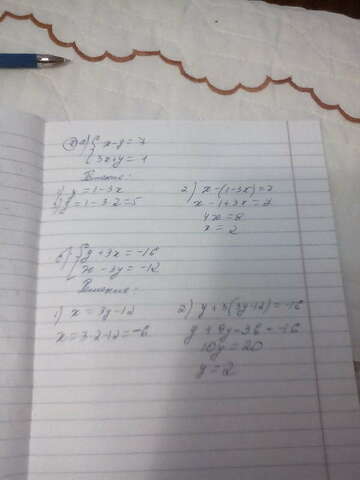 а) { x - y = 7
3x + y = 1
1) y = 1 - 3x
y = 1 - 3·2 = 5
2) x - (1 - 3x) = 7
x - 1 + 3x = 7
4x = 8
x = 2
б) { y + 3x = -16
x - 3y = -12
1) x = 3y - 12
x = 3·2 - 12 = -6
2) y + 3(3y - 12) = -16
y + 9y - 36 = -16
10y = 20
y = 2